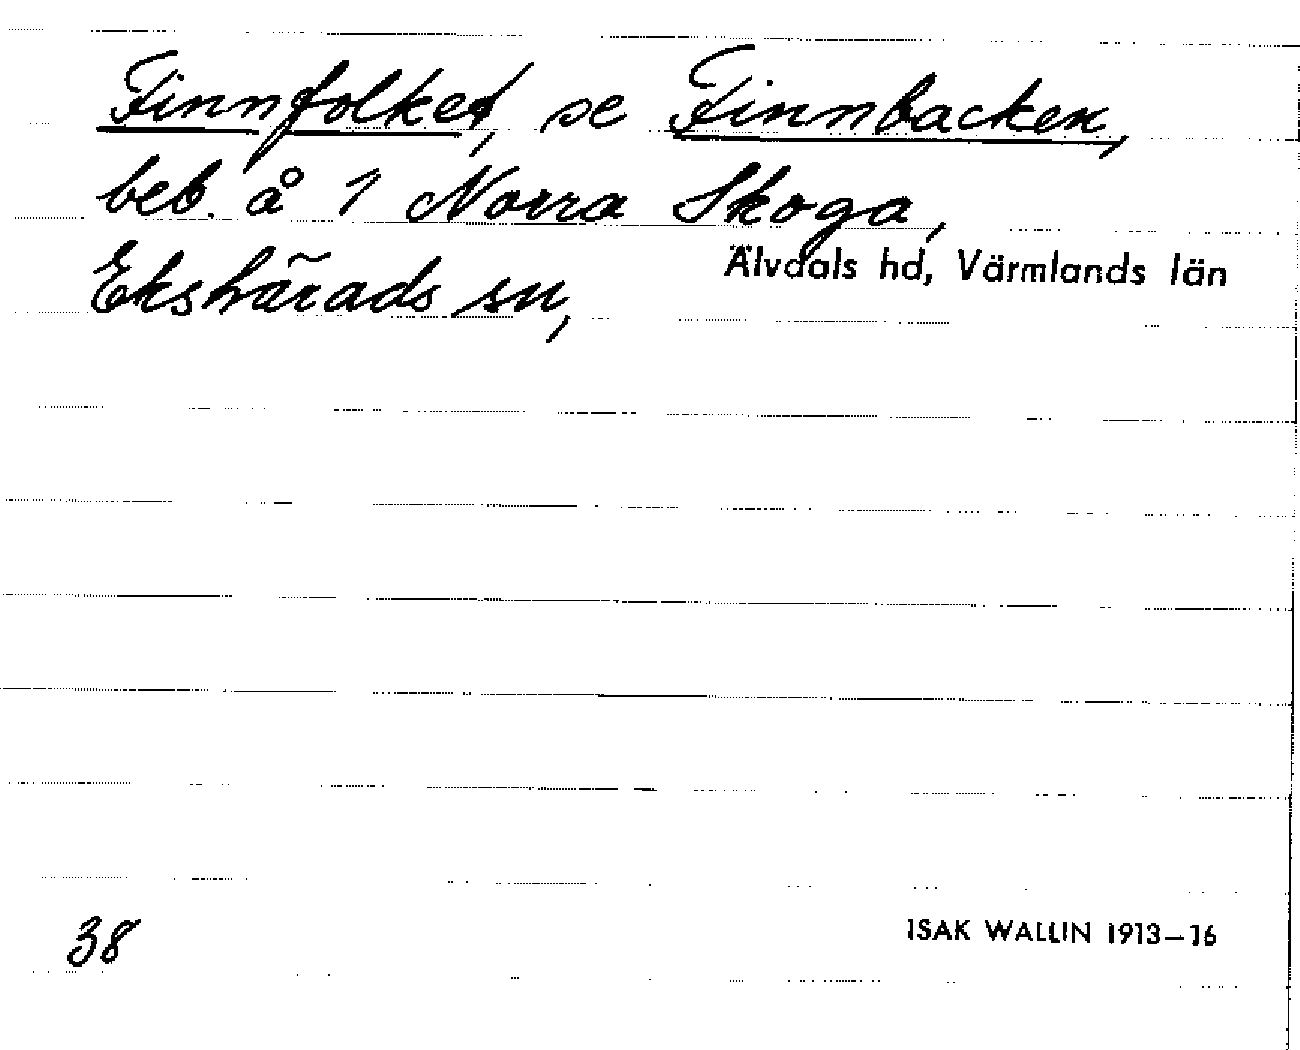 Finnfolket, se Finnbacken,
beb. å 1 Norra Skoga,
Ekshärads sn, Älvdals hd, Värmlands län
38 ISAK WALLIN 1913–16